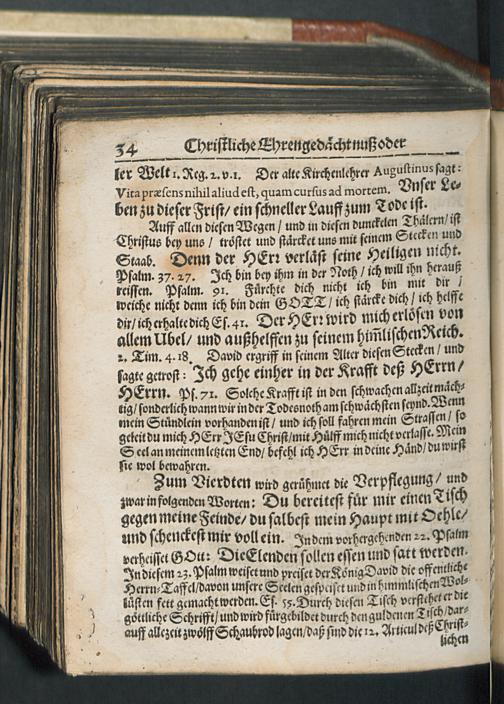 34 Christliche Ehrengedächtnuß oder
ler Welt 1. Reg. 2. v. 1. Der alte Kirchenlehrer Augustinus sagt:
Vita præsens nihil aliud est, quam cursus ad mortem. Vnser Le-
ben zu dieser Frist/ ein schneller Lauff zum Tode ist.
Auff allen diesen Wegen/ und in diesen dunckelen Thälern/ ist
Christus bey uns/ tröstet und stärcket uns mit seinem Stecken und
Staab. Denn der HErr verläst seine Heiligen nicht.
Psalm. 37. 27. Ich bin bey ihm in der Noth/ ich will ihn herauß
reissen. Psalm. 91. Fürchte dich nicht ich bin mit dir /
weiche nicht denn ich bin dein GOTT/ ich stärcke dich/ ich helffe
dir/ ich erhalte dich Es. 41. Der HErr wird mich erlösen von
allem Ubel/ und außhelffen zu seinem him̃lischen Reich.
2. Tim. 4. 18. David ergriff in seinem Alter diesen Stecken/ und
sagte getrost: Ich gehe einher in der Krafft deß HErrn/
HErrn. Ps. 71. Solche Krafft ist in den schwachen allzeit mäch-
tig/ sonderlich wann wir in der Todesnoth am schwächsten seynd. Wenn
mein Stündlein vorhanden ist/ und ich soll fahren mein Strassen/ so
geleit du mich HErr JEsu Christ/ mit Hülff mich nicht verlasse. Mein
Seel an meinem letzten End/ befehl ich HErr in deine Händ/ du wirst
sie wol bewahren.
Zum Vierdten wird gerühmet die Verpflegung/ und
zwar in folgenden Worten: Du bereitest für mir einen Tisch
gegen meine Feinde/ du salbest mein Haupt mit Oehle/
und schenckest mir voll ein. In dem vorhergehenden 22. Psalm
verheisset GOtt: Die Elenden sollen essen und satt werden.
In diesem 23. Psalm weiset und preiset der König David die öffentliche
Herrn-Taffel/ davon unsere Seelen gespeiset und in himmlischen Wol-
lüsten fett gemacht werden. Es. 55. Durch diesen Tisch verstehet er die
göttliche Schrifft/ und wird fürgebildet durch den guldenen Tisch/ dar-
auff allezeit zwölff Schaubrod lagen/ daß sind die 12. Articul deß Christ-
lichen